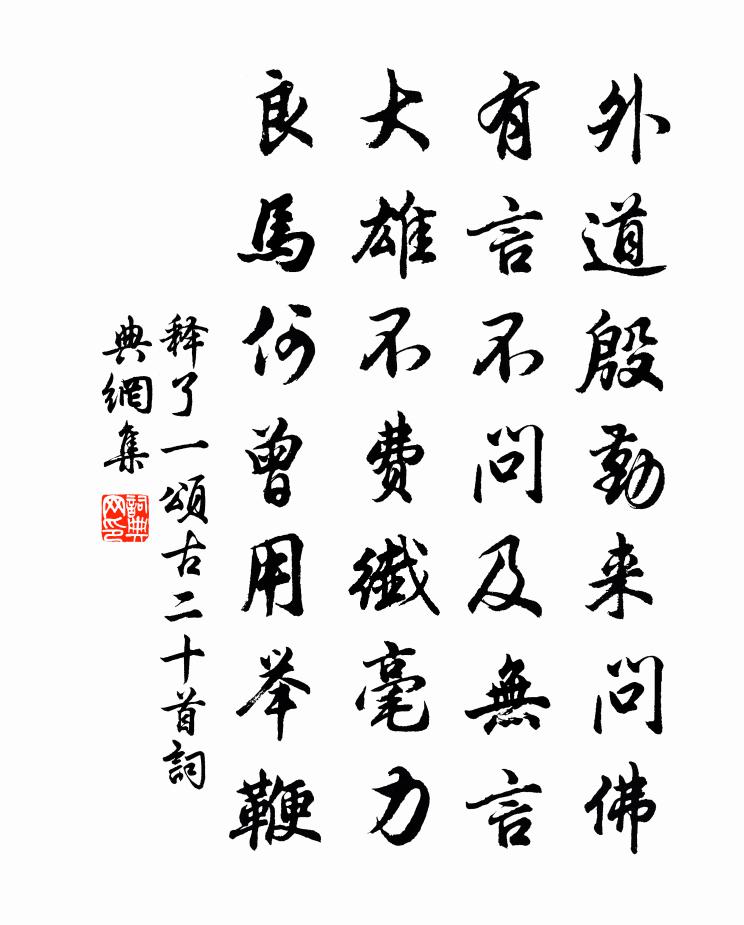 外道殷勤来問佛
有言不問及無言
大雄不费纎毫力
良馬何曾用举鞭
释了一頌古二十首詞
典網集
詞典
网印